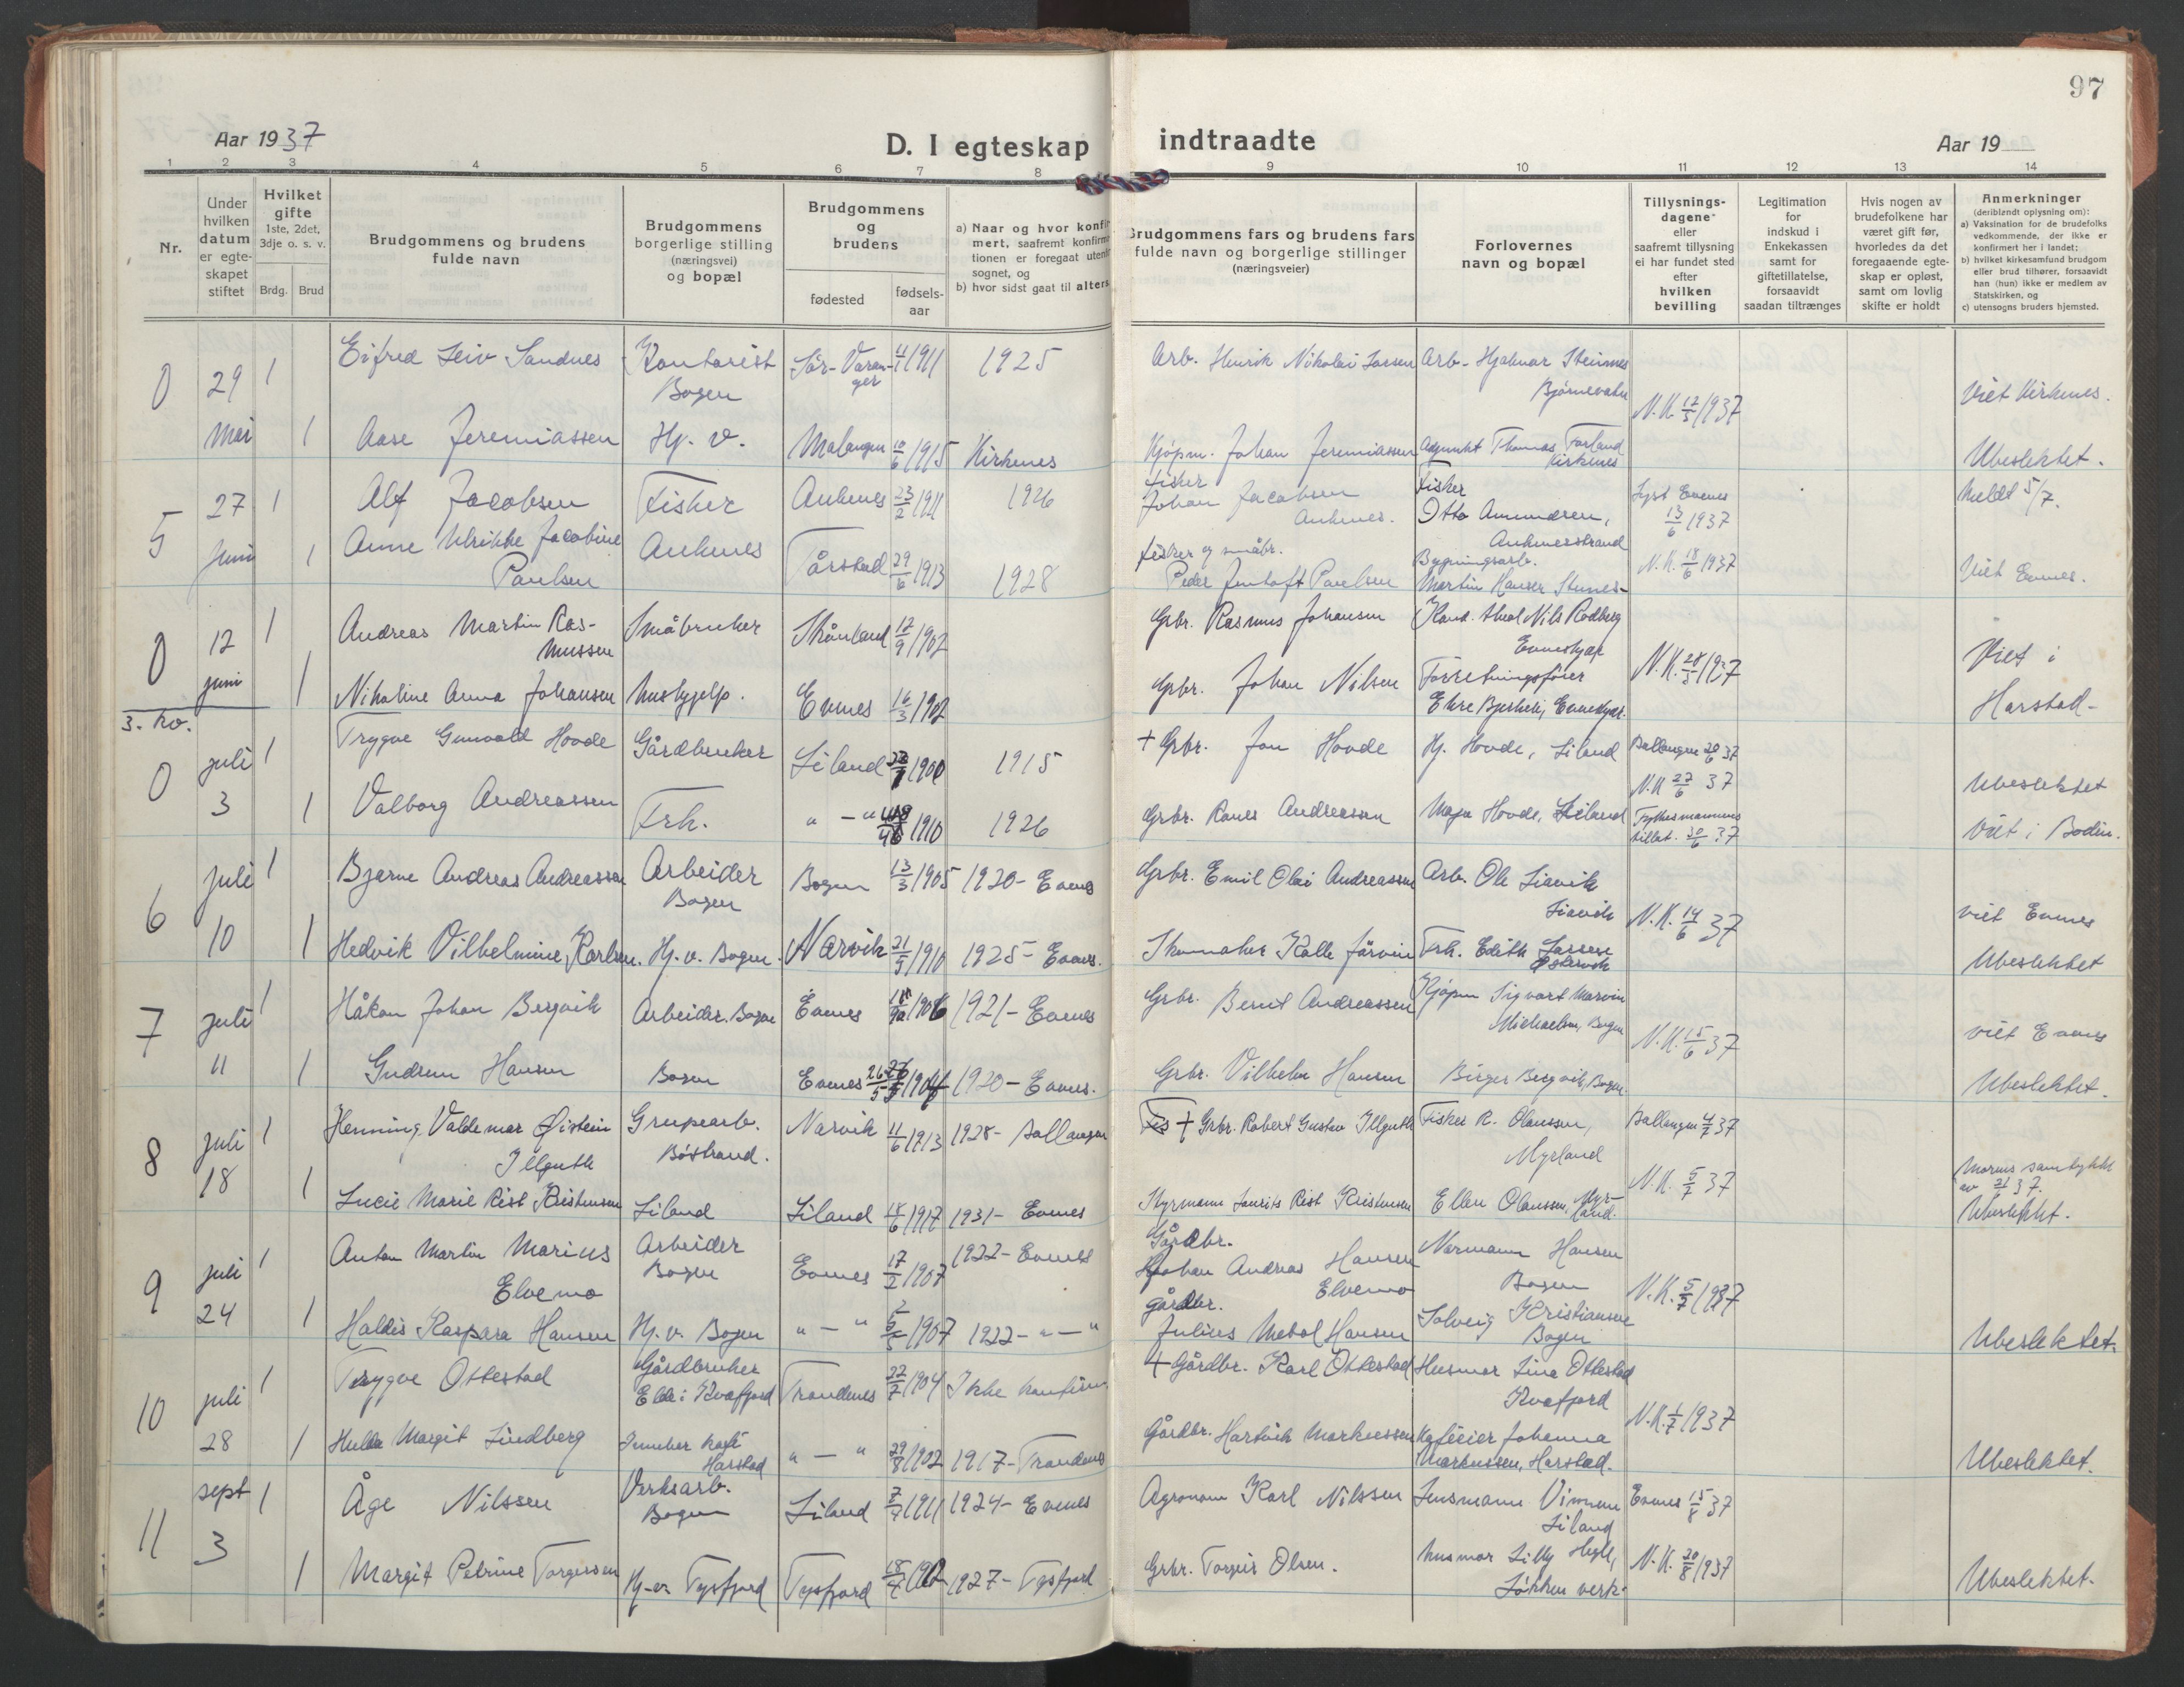 97
Aar 1937
D. I egteskap indtraadte
Aar 19
1 2 3 4 5 6 7 8 9 10 11 12 13 14
Nr.
Under
hvilken
datum
er egte-
skapet
stiftet
Hvilket
gifte
1ste, 2det,
3dje o. s. v.
Brdg. Brud
Brudgommens og brudens
fulde navn
Brudgommens
borgerlige stilling
(næringsvei)
og bopæl
Brudgommens
og
brudens
fødested
fødsels-
aar
a) Naar og hvor konfir
mert, saafremt konfirma
tionen er foregaat utenfor
sognet, og
b) hvor sidst gaat til alters
Brudgommens fars og brudens fars
fulde navn og borgerlige stillinger
(næringsveier)
Forlovernes
navn og bopæl
Tillysnings-
dagene
eller
saafremt tillysning
ei har fundet sted
efter
hvilken
bevilling
Legitimation
for
indskud i
Enkekassen
samt for
giftetillatelse,
forsaavidt
saadan tiltrænges
Hvis nogen av
brudefolkene har
været gift før,
hvorledes da det
foregaaende egte-
skap er opløst,
samt om lovlig
skifte er holdt
Anmerkninger
(deriblandt oplysning om):
a) Vaksination for de brudefolks
vedkommende, der ikke er
konfirmert her i landet;
b) hvilket kirkesamfund brudgom
eller brud tilhører, forsaavidt
han (hun) ikke er medlem av
Statskirken, og
c) utensogns bruders hjemsted.
0 29 1 Eifred Leiv Sandnes Kontorist Sör-Varan- 1911 1925 Arb. Henrik Nikolai Larsen Arb. Hjalmar Steinnes
Bogen ger Bjørnevatn N.K. 12/5 1937 Viet Kirkenes.
Mai 1 Aase Jeremiassen Hj. v. Malangen 10/6 1915 Kirkenes Kjøpm. Johan Jeremiassen Adjunkt Thomas Forland
Kirkenes Ubeslektet.
5 27 1 Alf Jacobsen Fisker Ankenes 23/2 1911 1926 Fisker
Johan Jacobsen
Ankenes. Fisker
Otto Amundsen,
Ankenesstrand Lyst Evenes
13/6 1937 Meldt 5/7.
Juni 1 Anne Ulrikke Jacobine
Paulsen Ankenes Tårstad 29/6 1913 1928 Fisker og småbr.
Peder Jentoft Paulsen Bygningsarb.
Martin Hansen N.K. 18/6 1937 Viet Evenes.
0 12 1 Andreas Martin Ras-
mussen Småbruker Skånland 12/9 1902 Grbr. Rasmus Johansen Kand. theol Nils Rodberg
Evenskjær Viet i
juni 1 Nikoline Anna Johansen Hushjelp. Evenes 16/3 1902 Grbr. Johan Nilsen Forretningsfører
N.K. 28/5 1937 Harstad-
3. kv.
0 juli 1 Trygve Gunvald Hovde Gårdbruker Liland 1900 1915 + Grbr. Jon Hovde Hj. Hovde, Liland Ballangen 20/6 37
N.K. 27/6 37 Ubeslektet
3 1 Valborg Andreassen Frk. " — " 1910 1926 Grbr. Andreassen Hovde, Liland Fylkesmannens
tillat. 30/6 37 Viet i Bodin.
6 juli 1 Bjarne Andreas Andreassen Arbeider
Bogen Bogen 13/3 1905 1920- Evenes Grbr. Emil Olai Andreassen Arb. Ole Liavik
Liavik N.K. 14/6 37 viet Evenes
10 1 Hedvik Vilhelmine Karlsen. Hj. v. Bogen. Narvik 21/9 1910 1925- Evenes. Skomaker Kalle Järvin Frk. Edith Larsen
Ubeslektet
7 juli 1 Håkon Johan Bergvik Arbeider. Bogen Evenes 1906 1921- Evenes Grbr. Bernt Andreassen Kjøpm Sigvart Marvin
Michaelsen, Bogen N.K. 15/6 37 viet Evenes
11 1 Gudrun Hansen Bogen Evenes 26/5 1904 1920- Evenes. Grbr. Vilhelm Hansen Birger Bergvik, Bogen. Ubeslektet.
8 juli 1 Henning Valdemar Øistein
Illguth Gruvearb.
Böstrand. Narvik 11/6 1913 1928- Ballangen + Grbr. Robert Gustav Illguth Fisker R. Olaussen,
Myrland Ballangen 4/7 37
N.K. 5/7 37
18 1 Lucie Marie Rist Kristensen Liland Liland 18/6 1917 1931- Evenes Styrmann Laurits Rist Kristensen Ellen Olaussen, Myr-
land. Morens samtykke
av 37.
Ubeslektet.
9 juli 1 Anton Martin Marius
Elvemo Arbeider
Bogen Evenes 17/2 1907 1922- Evenes Gårdbr.
Johan Andreas Hansen
Elvemo Normann Hansen
Bogen N.K. 5/7 1937
24 1 Haldis Kaspara Hansen Hj. v. Bogen " — " 1907 1922- " — " Gårdbr.
Julius Hansen Solveig Kristiansen
Bogen Ubeslektet.
10 juli 1 Trygve Ottestad Gårdbruker
Elde i Kvæfjord Trondenes 22/7 1904 Ikke konfirm. + Gårdbr. Karl Ottestad Husmor Lina Ottestad
Kvæfjord N.K. 1/7 1937
28 1 Hulda Margit Lindberg Inneher kafé
Harstad " — " 29/8 1902 1917- Trondenes Gårdbr. Hartvik Markussen Kaféeier Johanna
Markussen, Harstad. Ubeslektet.
11 sept 1 Åge Nilssen Verksarb.
Bogen Liland 1911 1924- Evenes Agronom Karl Nilssen Lensmann
Liland Evenes 15/8 37
3 1 Margit Petrine Torgersen Hj. v. Tysfjord Tysfjord 18/4 1927- Tysfjord Grbr. Torgeir Olsen. Husmor Lilly
Løkken verk. N.K. 20/8 1937 Ubeslektet.